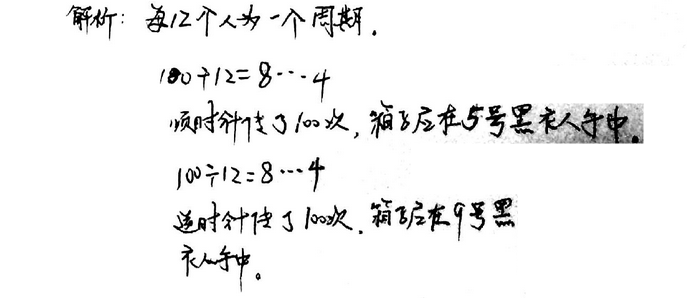 解析：每12个人为一个周期．
100÷12=8…4
顺时针传了100次，箱子应在5号黑衣人手中．
100÷12=8…4
逆时针传了100次．箱子应在9号黑
衣人手中。